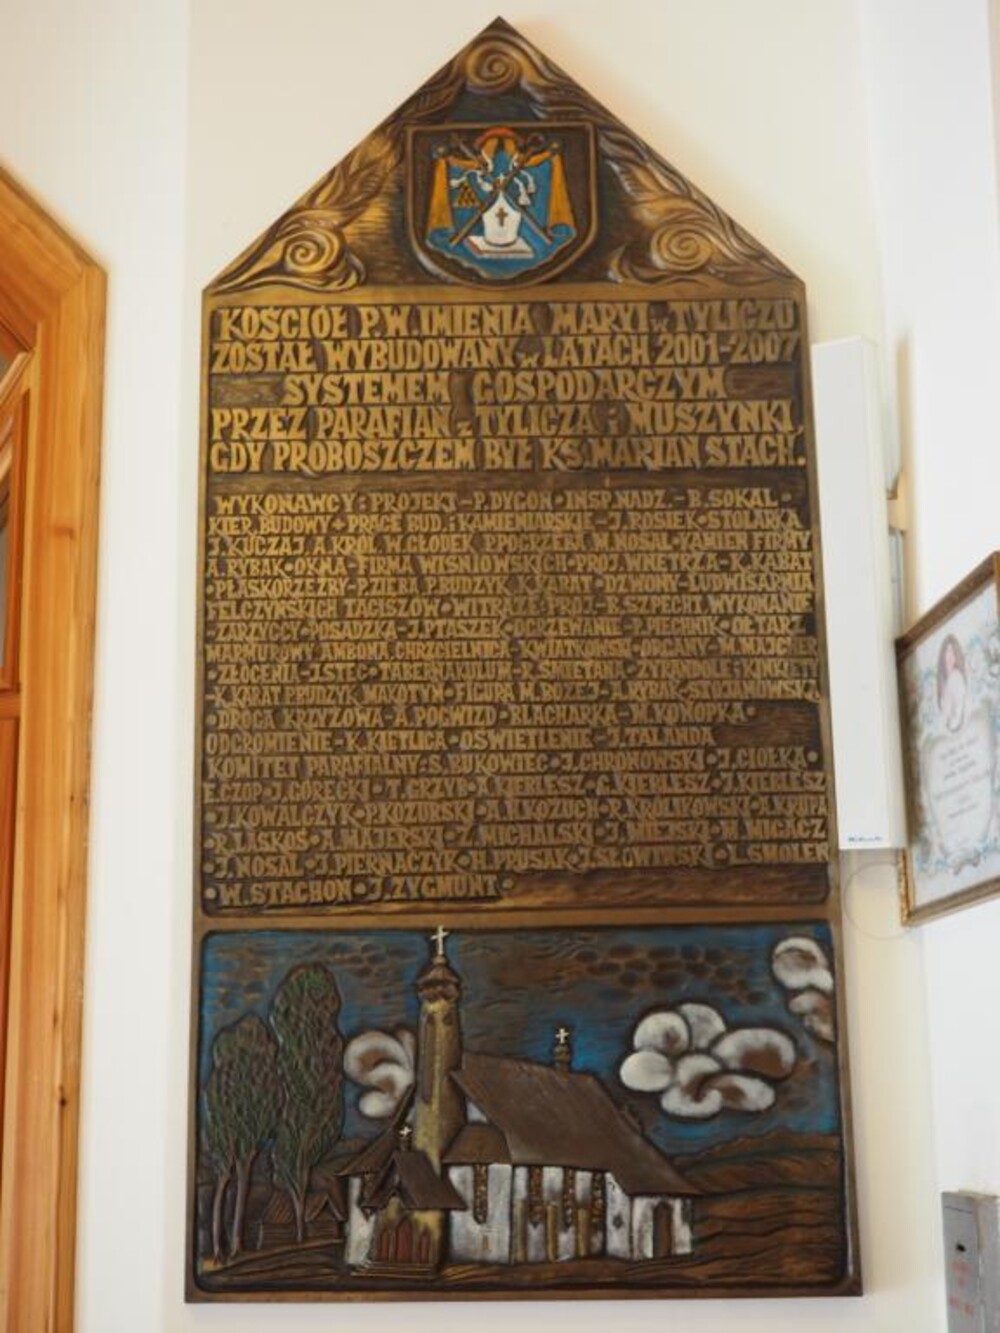 KOŚCIÓŁ P.W. IMIENIA MARYI w TYLICZU
ZOSTAŁ WYBUDOWANY w LATACH 2001-2007
SYSTEMEM GOSPODARCZYM
PRZEZ PARAFIAN z TYLICZA i MUSZYNKI,
GDY PROBOSZCZEM BYŁ KS. MARIAN STACH.
WYKONAWCY: PROJEKT - P. DYGOŃ • INSP. NADZ. - B. SOKAL •
KIER. BUDOWY • PRACE BUD. i KAMIENIARSKIE - J. ROSIEK • STOLARKA
J. KUCZAJ, A. KRÓL, W. GŁODEK, M. NOSAL • KAMIEŃ FIRMY
A. RYBAK • OKNA - FIRMA WIŚNIOWSKICH • PROJ. WNĘTRZA - K. KABAT
• PŁASKORZEŹBY - P. ZIĘBA, P. BUDZYK, K. KABAT • DZWONY - LUDWISARNIA
FELCZYŃSKICH TACISZÓW • WITRAŻE: PROJ. - B. SZPECHT, WYKONANIE
- ZARZYCCY • POSADZKA - J. PTASZEK • OGRZEWANIE - P. PIECHNIK • OŁTARZ
MARMUROWY, AMBONA, CHRZCIELNICA - KWIATKOWSKI • ORGANY - M. MAJCHER
• ZŁOCENIA - J. STEC • TABERNAKULUM - R. ŚMIETANA • ŻYRANDOLE i KINKIETY
K. KABAT, P. BUDZYK, • FIGURA M. BOŻEJ - A. RYBAK - STOJANOWSKA
• DROGA KRZYŻOWA - A. POGWIZD • BLACHARKA - M. KONOPKA •
ODGROMIENIE - K. KIETLICA • OŚWIETLENIE - J. TALANDA
KOMITET PARAFIALNY: S. BUKOWIEC • J. CHRONOWSKI • J. CIOŁKA •
E. CZOP • J. GÓRECKI • T. GRZYB • K. KIEBLESZ • G. KIEBLESZ • J. KIEBLESZ
J. KOWALCZYK • P. KOZUBSKI • A. i J. KOŻUCH • R. KRÓLIKOWSKI • H. KRUPA
R. LASKOŚ • A. MAJERSKI • Z. MICHALSKI • J. MIEJSKI • M. MIGACZ
J. NOSAL • J. PIERNACZYK • H. PRUSAK • J. SŁOWIŃSKI • L. SMOLEŃ
• W. STACHOŃ • J. ZYGMUNT •